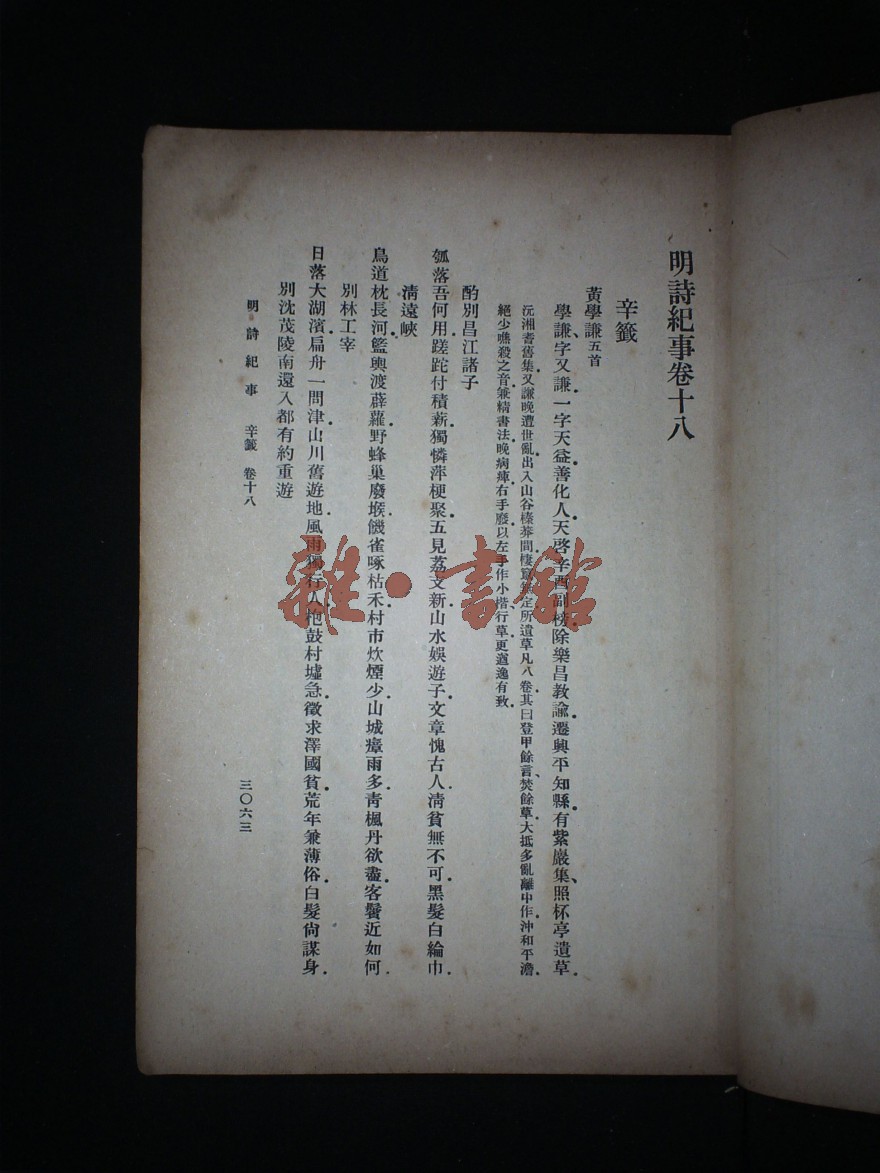 明詩紀事卷十八
辛籤
黃學謙五首
學謙、字又謙一字天益善化人天啓辛酉副榜除樂昌教諭遷興平知縣有紫巖集、照杯亭遺草
沅湘耆舊集又謙晚遭世亂出入山谷榛莽間棲竄無定所遺草凡八卷其曰登甲餘言、焚餘草大抵多亂離中作沖和平澹
絕少噍殺之音兼精書法晚病痺右手廢以左手作小楷、行草更遒逸有致
酌別昌江諸子
瓠落吾何用蹉跎付積薪獨憐萍梗聚五見荔文新山水娛遊子文章愧古人淸貧無不可黑髮白綸巾
淸遠峽
鳥道枕長河籃輿渡薜蘿野蜂巢廢堠饑雀啄枯禾村市炊煙少山城瘴雨多靑楓丹欲盡客鬢近如何
別林工宰
日落大湖濱扁舟一問津山川舊遊地風雨獨行人枹鼓村墟急徵求澤國貧荒年兼薄俗白髮尙謀身
別沈茂陵南還入都有約重遊
明詩紀事 辛籤 卷十八
三〇六三
雜·書館